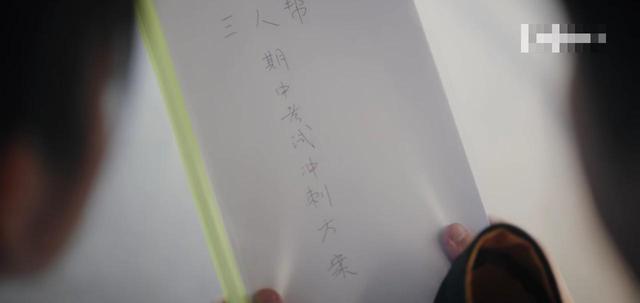 三人帮
期中考试冲刺方案